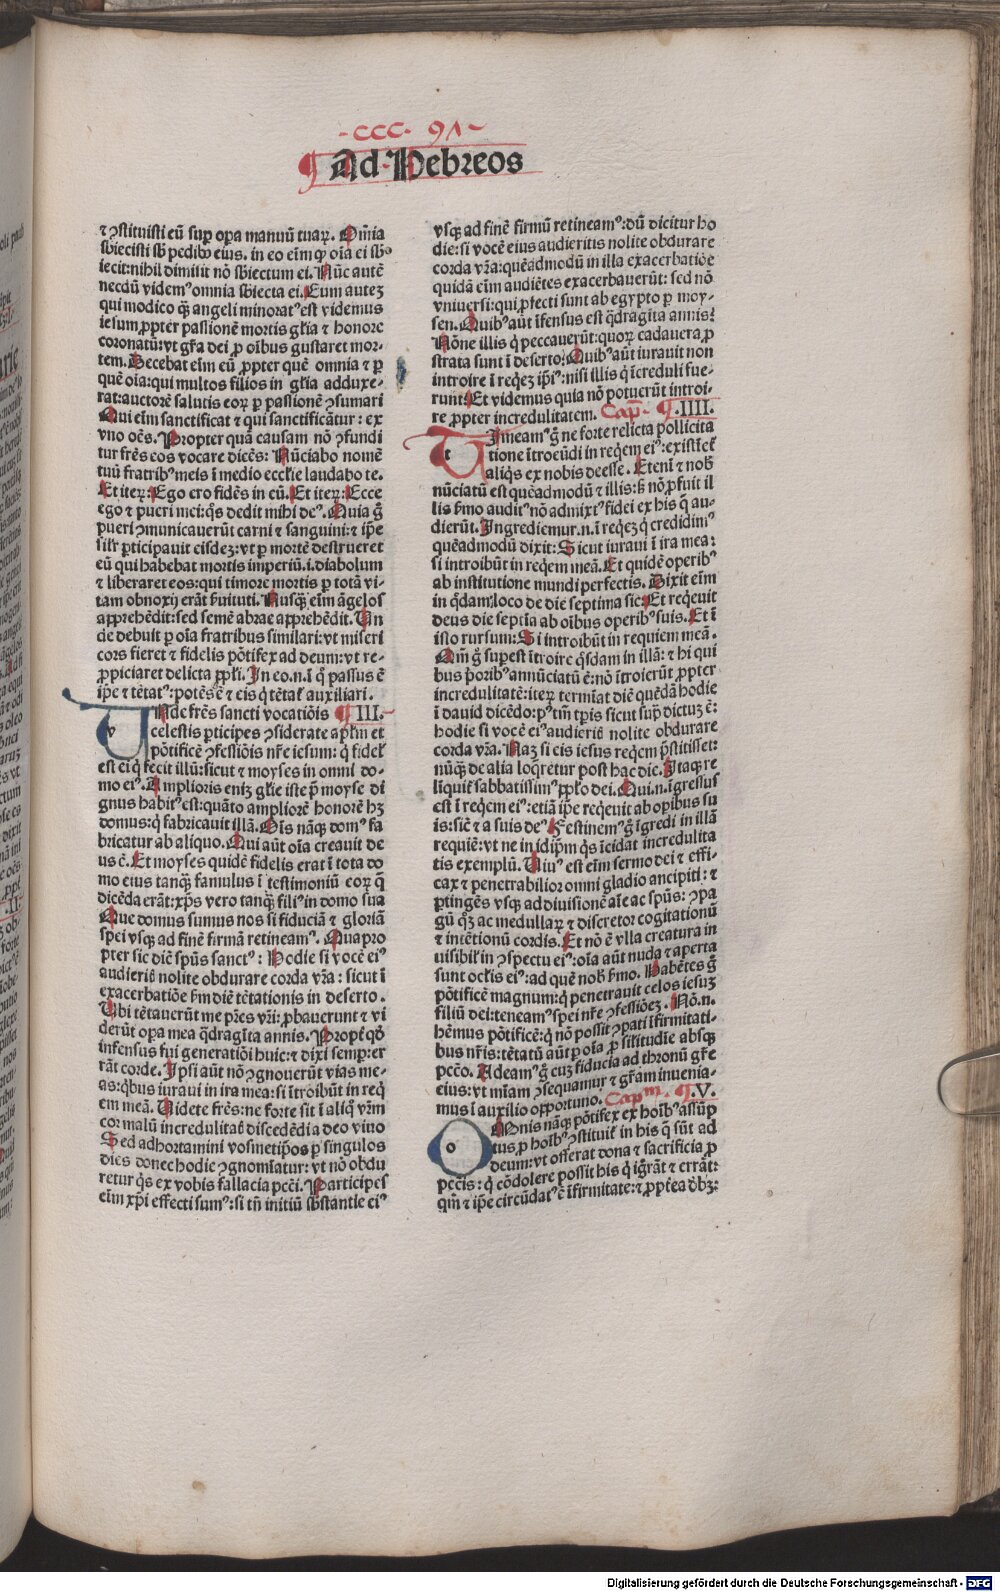 -CCC· 9Λ-
¶ Ad·Hebreos
⁊ ꝯstituisti eū sup̄ oꝑa manuū tuaꝝ. Om̄ia
sb̄iecisti sb̄ pedibꝰ eius. in eo eīm qꝫ oīa ei sb̄
iecit: nihil dimisit nō sb̄iectum ei. Nūc autē
necdū videmꝰ omnia sb̄iecta ei. Eum autez
qui modico qꝫ angeli minoratꝰ est videmus
iesum ꝓpter passionē mortis gl̄ia ⁊ honore
coronatū: vt gr̄a dei ꝓ oībus gustaret mor-
tem. Decebat eīm eū ꝓpter quē omnia ⁊ ꝑ
quē oīa: qui multos filios in gl̄ia adduxe-
rat: auctorē salutis eoꝝ ꝑ passionē ꝯsumari
Qui eīm sanctificat ⁊ qui sanctificātur: ex
vno oēs. Propter quā causam nō ꝯfundi
tur fr̄es eos vocare dicēs: Nūciabo nomē
tuū fratribꝰ meis ī medio eccl̄ie laudabo te.
Et iteꝝ: Ego ero fidēs in eū. Et iteꝝ: Ecce
ego ⁊ pueri mei: qs̄ dedit mihi deꝰ. Quia g̊
pueri ꝯmunicauerūt carni ⁊ sanguini: ⁊ ip̄e
silr̄ ꝑticipauit eisdez: vt ꝑ mortē destrueret
eū qui habebat mortis imperiū .i. diabolum
⁊ liberaret eos: qui timore mortis ꝑ totā vi-
tam obnoxij erāt s̄uituti. Nusqꝫ eīm āgelos
apprehēdit: sed semē abrae apprehēdit. Vn
de debuit ꝑ oīa fratribus similari: vt miseri
cors fieret ⁊ fidelis pōtifex ad deum: vt re-
ꝓpiciaret delicta ppl̄i. In eo .n. ī q̊ passus ē
ip̄e ⁊ tētatꝰ: potēs ē ⁊ eis q̇ tētant̄ auxiliari.
Vnde fr̄es sancti vocatiōis ¶ III.-
celestis ꝑticipes ꝯsiderate apl̄m et
pōtificē ꝯfessiōis nr̄e iesum: q̇ fidel̓
est ei q̇ fecit illū: sicut ⁊ moyses in omni do-
mo eiꝰ. Amplioris enīz gl̄ie iste p̄ moyse di
gnus habitꝰ est: quāto ampliorē honorē hꝫ
domus: q̇ fabricauit illā. Oīs nāqꝫ domꝰ fa
bricatur ab aliquo. Qui aūt oīa creauit de
us ē. Et moyses quidē fidelis erat ī tota do
mo eius tanqꝫ famulus ī testimoniū eoꝝ q̄
dicēda erāt: xp̄s vero tanqꝫ filiꝰ in domo sua
Que domus sumus nos si fiduciā ⁊ gloriā
spei vsqꝫ ad finē firmā retineamꝰ. Quapro
pter sic dic̄ spūs sanctꝰ: Hodie si vocē eiꝰ
audieriꝭ nolite obdurare corda vr̄a: sicut ī
exacerbatiōe sm̄ diē tētationis in deserto.
Vbi tētauerūt me pr̄es vr̄i: ꝓbauerunt ⁊ vi
derūt oꝑa mea q̄dragīta annis. Propt̄ qd̄
infensus fui generatiōi huic: ⁊ dixi semꝑ: er
rāt corde. Ipsi aūt nō ꝯgnouerūt vias me-
as: qbꝰ iuraui in ira mea: si ītroibūt in req̇
em meā. Videte fr̄es: ne forte sit ī aliq̊ vr̄m
cor malū incredulitatꝭ discedēdi a deo viuo
Sed adhortamini vosmetip̄os ꝑ singulos
dies donec hodie ꝯgnomīatur: vt nō obdu
retur qs̄ ex vobis fallacia pcc̄i. Participes
eīm xp̄i effecti sumꝰ: si tn̄ initiū sb̄stantie eiꝰ
vsqꝫ ad finē firmū retineamꝰ: dū dicitur ho
die: si vocē eius audieritis nolite obdurare
corda vr̄a: quēadmodū in illa exacerbatiōe
quidā eīm audiētes exacerbauerūt: sed nō
vniuersi: qui ꝓfecti sunt ab egypto ꝑ moy-
sen. Quibꝰ aūt īfensus est q̄dragīta annis?
Nōne illis q̇ peccauerūt: quoꝝ cadauera ꝓ
strata sunt ī deserto: Quibꝰ aūt iurauit non
introire ī req̇ez ip̄iꝰ: nisi illis q̇ īcreduli fue-
runt: Et videmus quia nō potuerūt introi-
re ꝓpter incredulitatem. Cap̄- ¶ .IIII.
Timeamꝰ g̊ ne forte relicta pollicita
tione ītroeūdi in req̇em eiꝰ: existet̄
aliq̇s ex nobis deesse. Eteni ⁊ nob̄
nūciatū est quēadmodū ⁊ illis: s̄ nō ꝓfuit il
lis sm̄o auditꝰ nō admixtꝰ fidei ex his q̄ au-
dierūt. Ingrediemur .n. ī req̇ez q̇ credidimꝰ
quēadmodū dixit: Sicut iuraui ī ira mea:
si introibūt in req̇em meā. Et quidē operibꝰ
ab institutione mundi perfectis. Dixit eīm
in q̊dam loco de die septima sic: Et req̇euit
deus die septīa ab oībus operibꝰ suis. Et ī
isto rursum: Si introibūt in requiem meā.
Qm̄ g̊ suꝑest ītroire q̇sdam in illā: ⁊ hi qui
bus p̄oribꝰ annūciatū ē: nō ītroierūt ꝓpter
incredulitatē: iteꝝ termīat diē quēdā hodie
ī dauid dicēdo: pꝰ tm̄ tp̄is sicut sup̄ dictuz ē:
hodie si vocē eiꝰ audieriꝭ nolite obdurare
corda vr̄a. Naz si eis iesus req̇em p̄stitisset:
nūqꝫ de alia loq̄retur post hac die. Itaqꝫ re
līquit̄ sabbatissimꝰ ppl̄o dei. Qui .n. īgressus
est ī req̇em eiꝰ: etiā ip̄e req̇euit ab oꝑibus su
is: sic̄ ⁊ a suis deꝰ. Festinemꝰ g̊ īgredi in illā
requiē: vt ne in idip̄m q̇s īcidat incredulita
tis exemplū. Viuꝰ est eīm sermo dei ⁊ effi-
cax ⁊ penetrabilior omni gladio ancipiti: ⁊
ꝑtingēs vsqꝫ ad diuisionē aīe ac spūs: ꝯpa
gū q̊ꝫ ac medullaꝝ ⁊ discretor cogitationū
⁊ intētionū cordis. Et nō ē vlla creatura in
uisibil̓ in ꝯspectu eiꝰ: oīa aūt nuda ⁊ aperta
sunt ocl̓is eiꝰ: ad quē nob̄ sm̄o. Habētes g̊
pōtificē magnum: q̇ penetrauit celos iesuz
filiū dei: teneamꝰ spei nr̄e ꝯfessiōez. Nō .n.
hēmus pōtificē: q̇ nō possit ꝯpati īfirmitati-
bus nr̄is: tētatū aūt ꝑ oīa ꝓ sil̓itudīe absqꝫ
pcc̄o. Adeamꝰ g̊ cuz fiducia ad thronū gr̄e
eius: vt mīam ꝯsequamur ⁊ gr̄am inuenia-
mus ī auxilio opportuno. Cap̄ᵐ. ¶.V.
Omnis nāqꝫ pōtifex ex hoībꝰ assūp
tus ꝓ hoībꝰ ꝯstituit̄ in his q̄ sūt ad
deum: vt offerat dona ⁊ sacrificia ꝓ
pcc̄is: q̇ cōdolere possit his q̇ ig̊rāt ⁊ errāt:
qm̄ ⁊ ip̄e circūdatꝰ ē īfirmitate: ⁊ ꝓpt̄ea dꝫ:
Digitalisierung gefördert durch die Deutsche Forschungsgemeinschaft - DFG